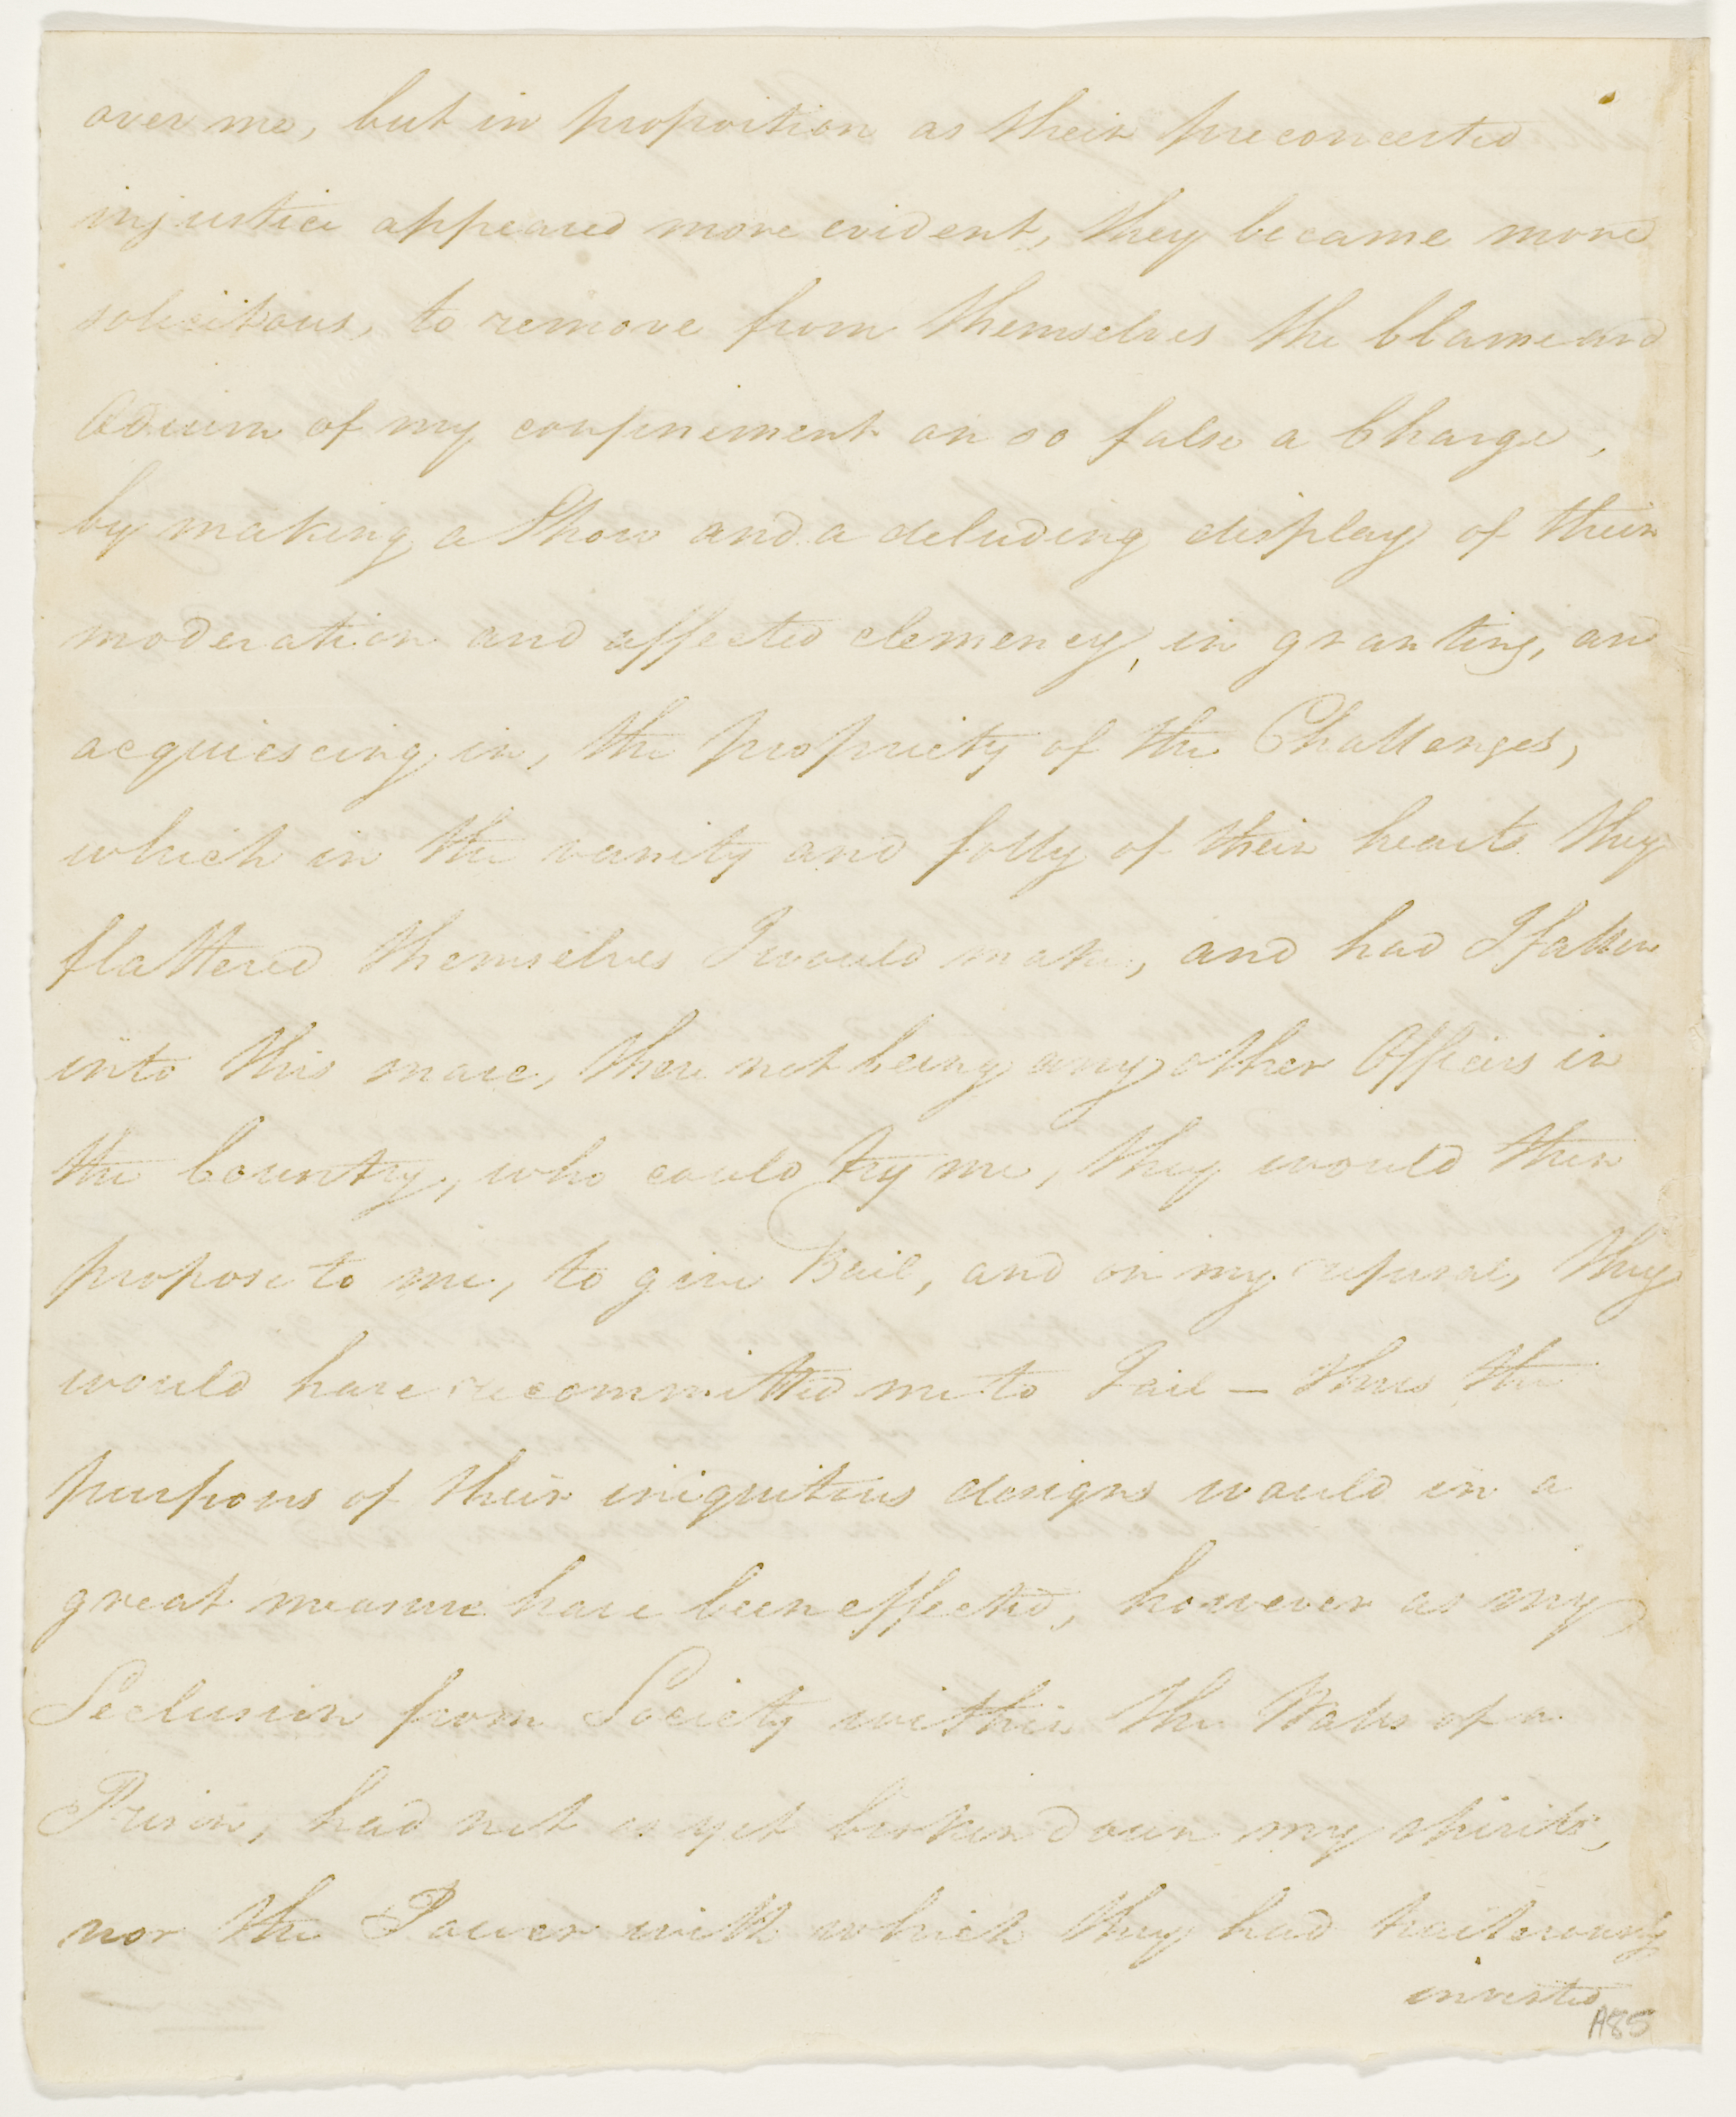 over me, but in proportion as their preconcerted
injustice appeared more evident, they became more
solicitous, to remove from themselves the blame and
Odium of my confinement on so false a Charge,
by making a Show and a deluding display of their
moderation and affected clemency, in granting, and
acquiescing in, the propriety of the Challenges,
which in the vanity and folly of their hearts they
flattered themselves I would make, and had I fallen
into this snare, there not being any other Officers in
the Country, who could try me, they would then
propose to me, to give Bail, and on my refusal, they
would have recommitted me to Jail — thus the
purposes of their iniquitous designs would in a
great measure have been effected, however as my
Seclusion from Society within the Walls of a
Prison, had not as yet broken down my spirits,
nor the Power with which they had traiterously
invested
A85